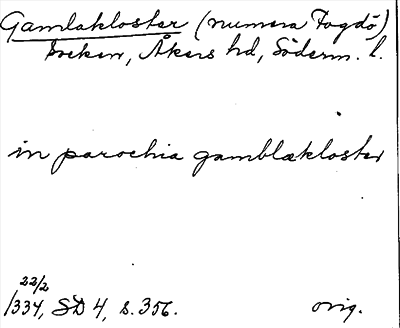 Gamlakloster (numera Fogdö)
socken, Åkers hd, Söderm. l.
in parochia gamblækloster
22/2
1334, SD 4, s. 356. orig.